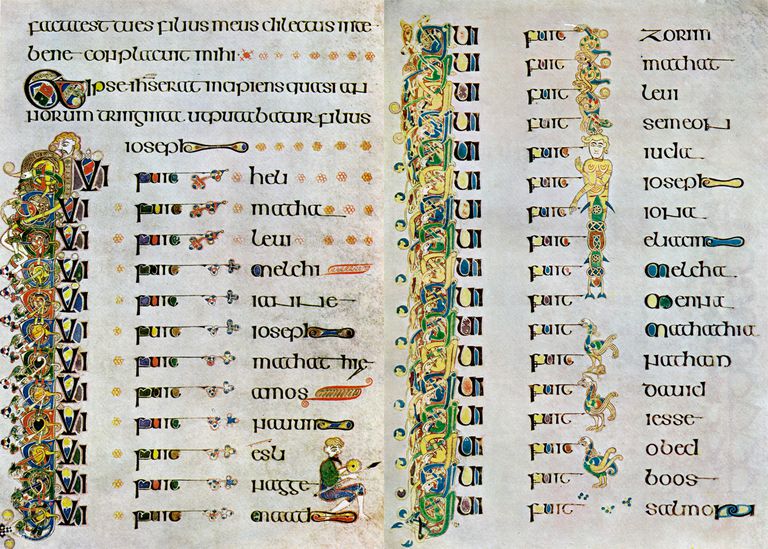 facta est tu es filius meus dilectus in te
bene conplacuit mihi
Et ipse ihs erat incipiens quasi an
norum triginta ut putabatur filius
ioseph
QUI fuit heli
QUI fuit matha
QUI fuit leui
QUI fuit melchi
QUI fuit iannae
QUI fuit ioseph
QUI fuit mathathie
QUI fuit amos
QUI fuit nauum
QUI fuit esli
QUI fuit nagge
QUI fuit maath
QUI fuit zorim
QUI fuit mathat
QUI fuit leui
QUI fuit semeon
QUI fuit iuda
QUI fuit ioseph
QUI fuit iona
QUI fuit eliacim
QUI fuit melcha
QUI fuit menna
QUI fuit mathathia
QUI fuit nathan
QUI fuit dauid
QUI fuit iesse
QUI fuit obed
QUI fuit boos
QUI fuit salmon